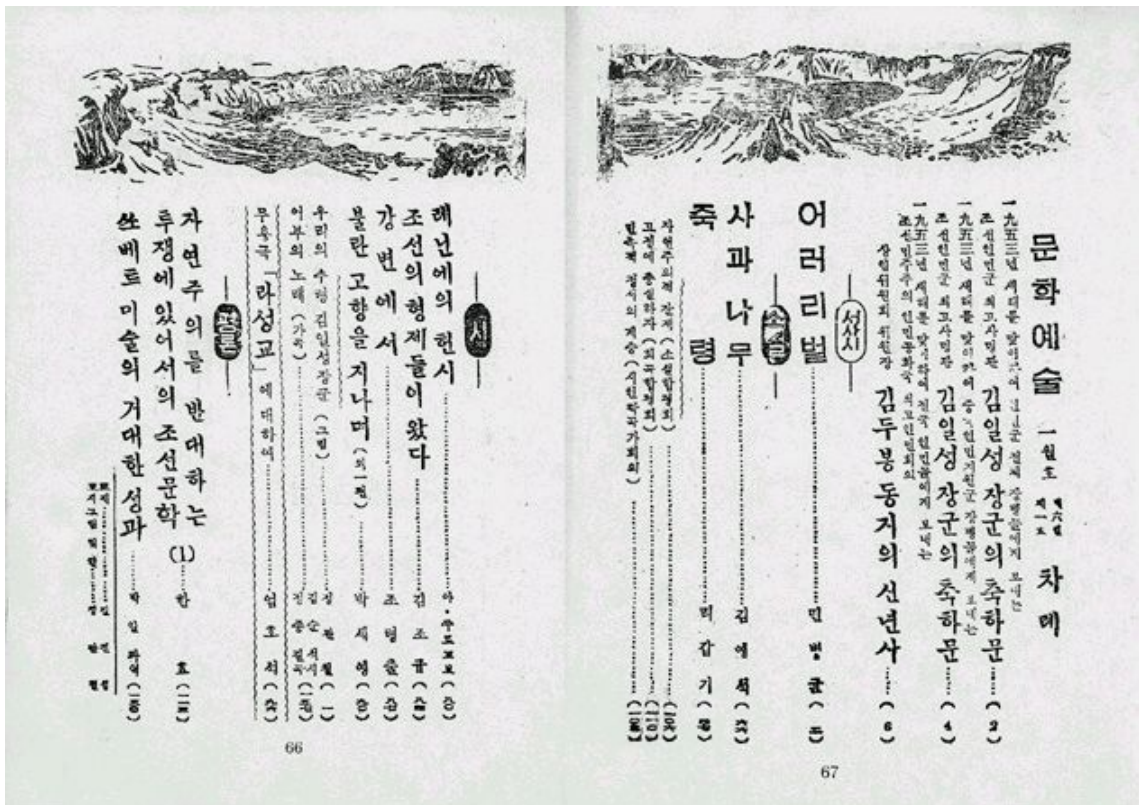 문학예술 一월호 제六권 제一호 차례
一九五三년 새해를 맞이하여 인민군 전체 장병들에게 보내는
조선인민군 최고사령관 김일성 장군의 축하문……(2)
一九五三년 새해를 맞이하여 중국인민지원군 장병들에게 보내는
조선인민군 최고사령관 김일성 장군의 축하문……(4)
一九五三년 새해를 맞이하여 전국 인민들에게 보내는
조선민주주의 인민공화국 최고인민회의
상임위원회 위원장 김두봉 동지의 신년사……(6)
서사시
어러리벌……민병균
소설
사과나무……
죽령……리갑기
자연주의적 잔재 (소설합평회)……
고전에 충실하자 (희곡합평회)……
민족적 정서의 계승……
67
시
레닌에의 헌시……
조선의 형제들이 왔다……김조규
강변에서……조령출
불란 고향을 지나며……박세영
우리의 수령 김일성장군 (그림)……정관철 (一)
어부의 노래 (가곡)……김순석 시
무용극 「라성교」에 대하여……임호석
평론
자연주의를 반대하는
투쟁에 있어서의 조선문학 (1)……한효
쏘베트 미술의 거대한 성과……
66